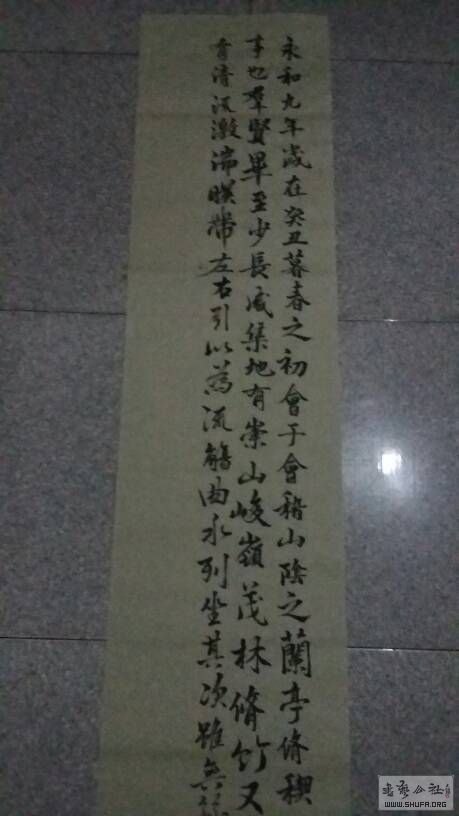 永和九年歲在癸丑暮春之初會于會稽山陰之蘭亭脩稧
事也羣賢畢至少長咸集地有崇山峻嶺茂林脩竹又
有清流激湍暎帶左右引以為流觴曲水列坐其次雖無絲
WWW.SHUFA.ORG